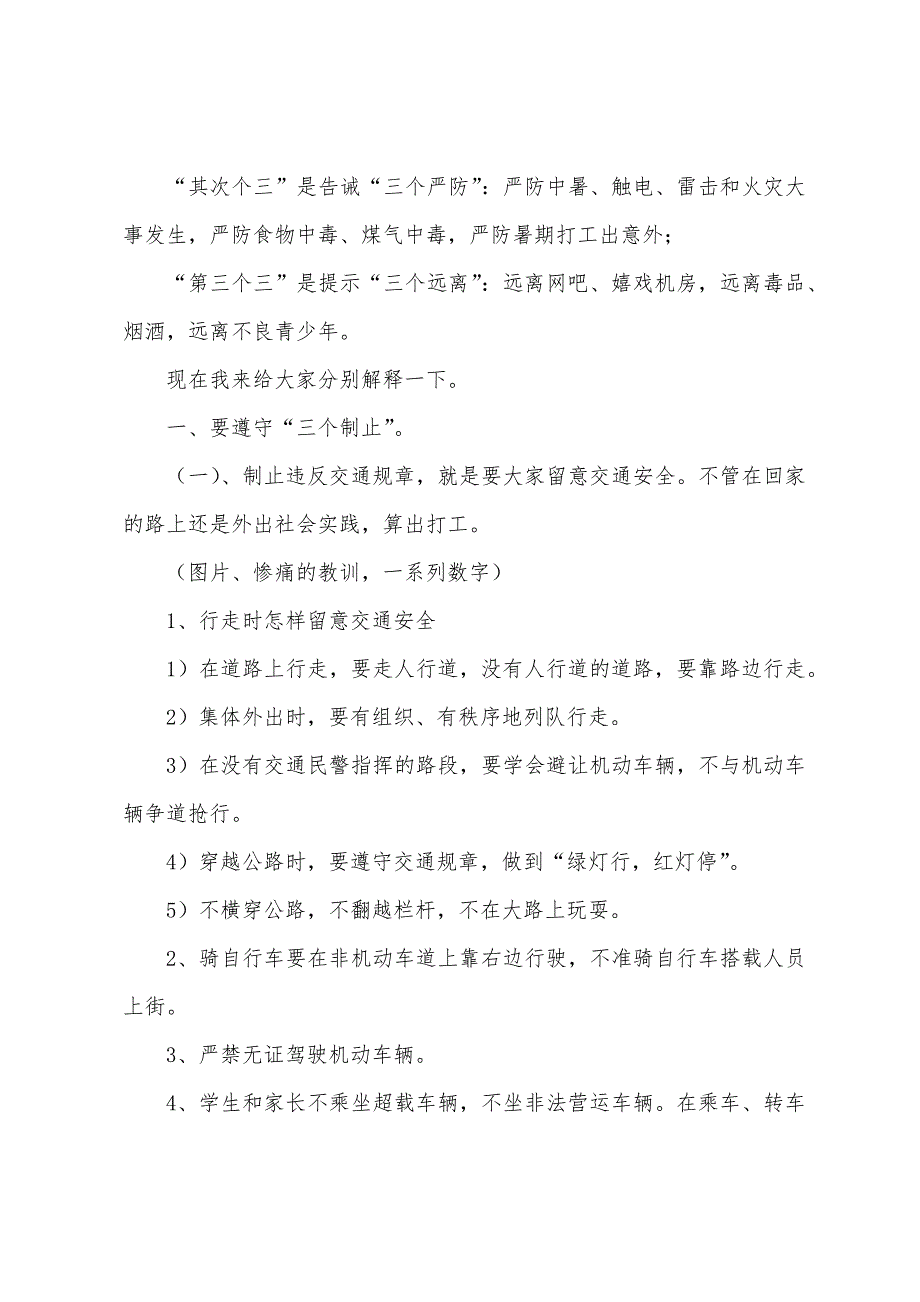 “其次个三”是告诫“三个严防”：严防中暑、触电、雷击和火灾大
事发生，严防食物中毒、煤气中毒，严防暑期打工出意外；
“第三个三”是提示“三个远离”：远离网吧、嬉戏机房，远离毒品、
烟酒，远离不良青少年。
现在我来给大家分别解释一下。
一、要遵守“三个制止”。
（一）、制止违反交通规章，就是要大家留意交通安全。不管在回家
的路上还是外出社会实践，算出打工。
（图片、惨痛的教训，一系列数字）
1、行走时怎样留意交通安全
1）在道路上行走，要走人行道，没有人行道的道路，要靠路边行走。
2）集体外出时，要有组织、有秩序地列队行走。
3）在没有交通民警指挥的路段，要学会避让机动车辆，不与机动车
辆争道抢行。
4）穿越公路时，要遵守交通规章，做到“绿灯行，红灯停”。
5）不横穿公路，不翻越栏杆，不在大路上玩耍。
2、骑自行车要在非机动车道上靠右边行驶，不准骑自行车搭载人员
上街。
3、严禁无证驾驶机动车辆。
4、学生和家长不乘坐超载车辆，不坐非法营运车辆。在乘车、转车